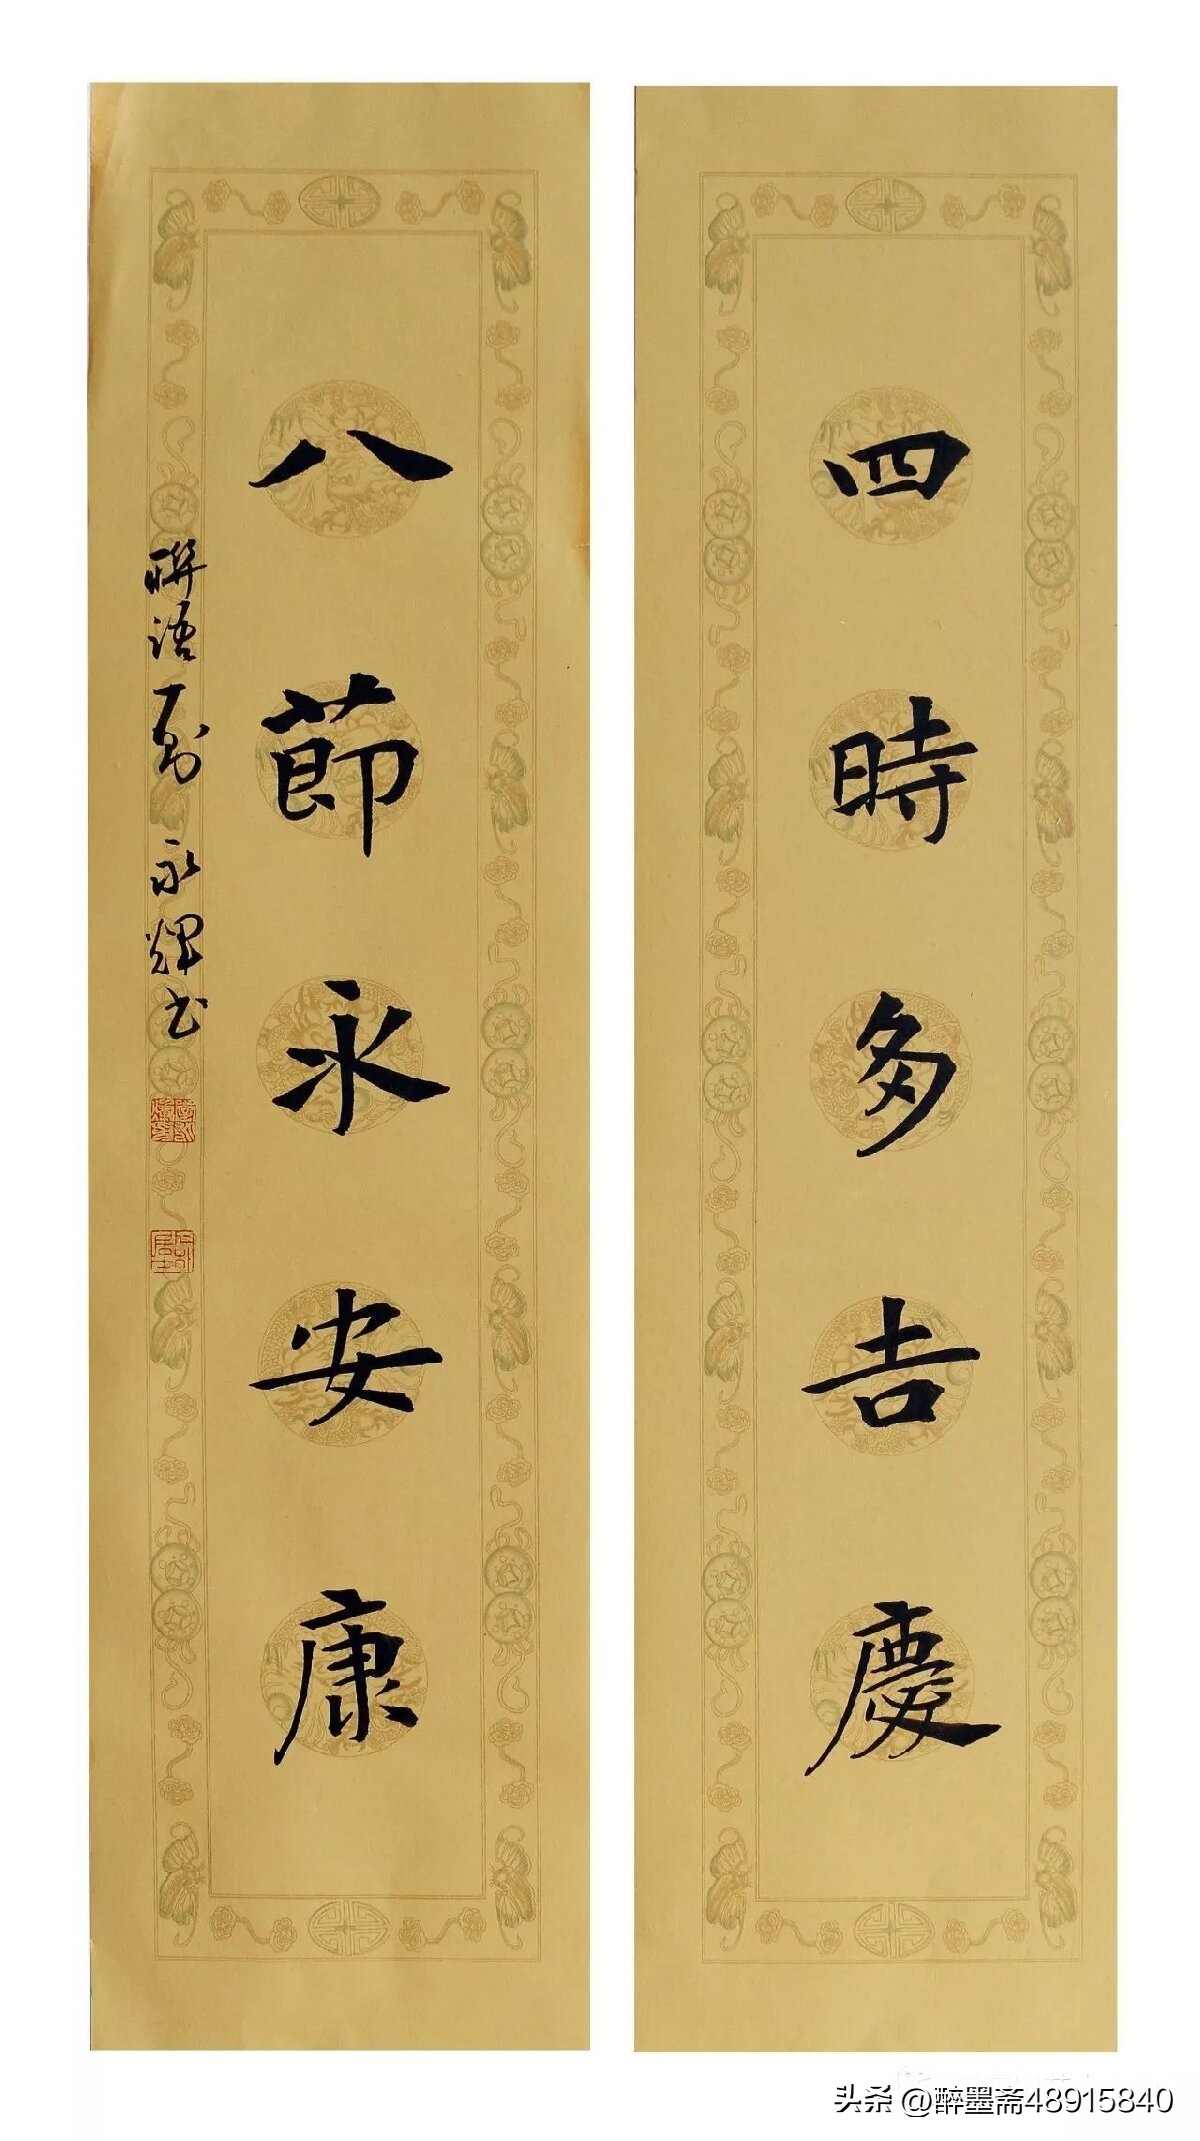 四時多吉慶
八節永安康
聯語 永輝书
头条 @醉墨斋48915840